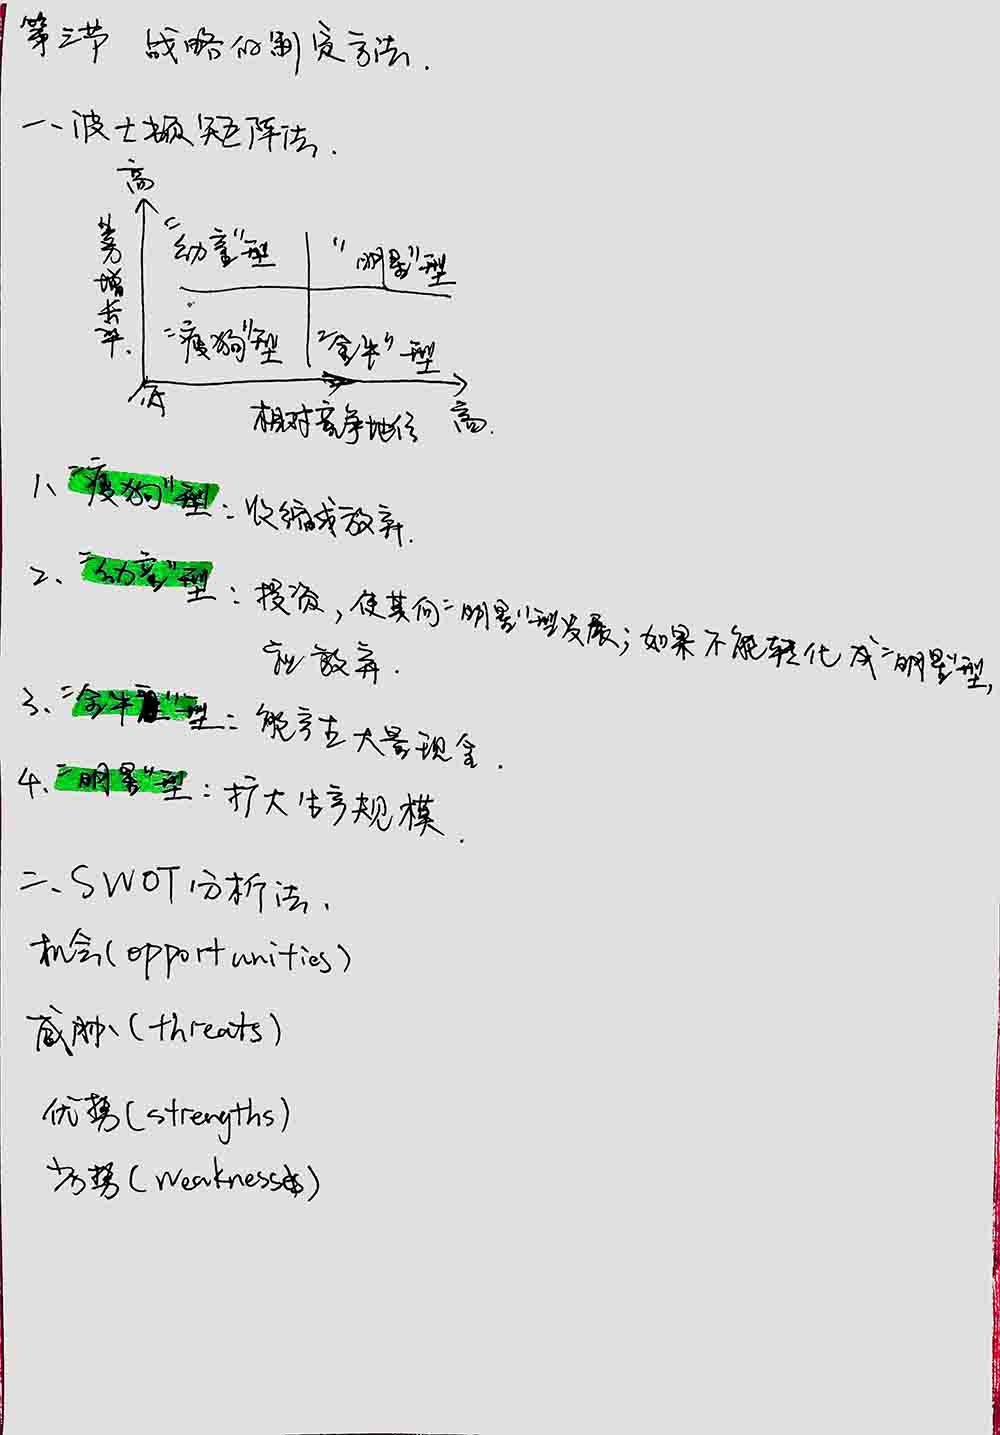 第三节 战略的制定方法.
一、波士顿矩阵法.
高
业务增长率.
"幼童"型 "明星"型
"瘦狗"型 "金牛"型
低 相对竞争地位 高.
1、"瘦狗"型：收缩或放弃.
2、"幼童"型：投资，使其向"明星"型发展；如果不能转化成"明星"型，
就放弃.
3、"金牛"型：能产生大量现金.
4、"明星"型：扩大生产规模.
二、SWOT分析法、
机会(opportunities)
威胁、(threats)
优势(strengths)
劣势(weakness)